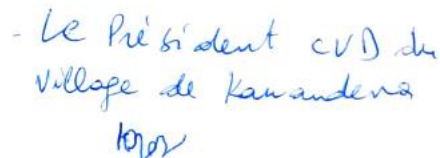 - Le Président CVD du
village de Kawandena